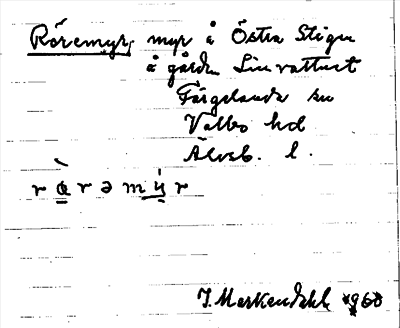 Röremyr, myr å Östra Stigen
å gården Linvattnet
Färgelanda sn
Valbo hd
Älvsb. l.
r ὰ r ə m y̍ r
J. Markendahl 1960